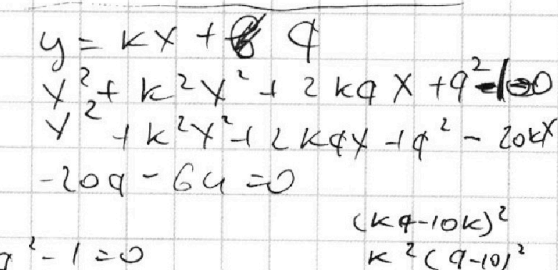 y = kx + q
x² + k²x² + 2kqx + q² - 1 = 0
x² + k²x² + 2kqx + q² - 20kx
- 20q - 64 = 0
(kq-10k)²
q² - 1 = 0
k²(q-10)²